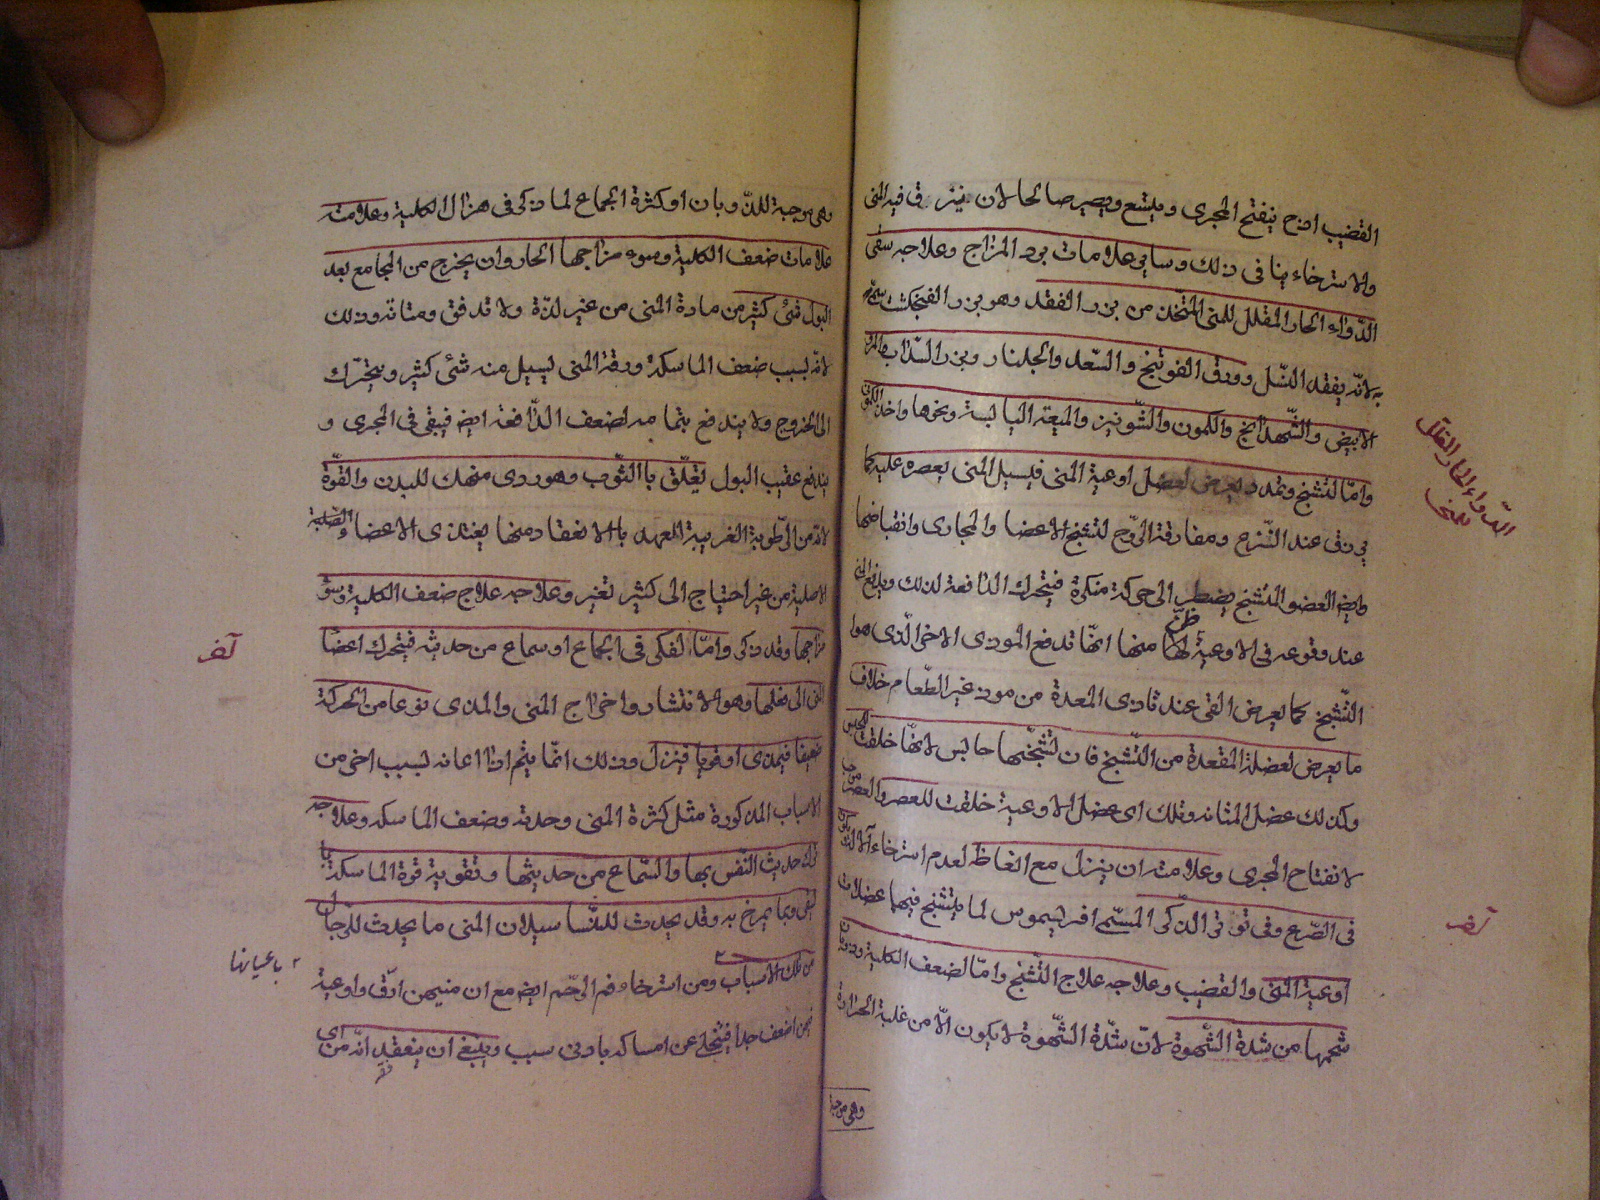 القضيب اذح ينفتح المجرى ويتسع ويصير صالحا لان ينزق فيه المنى
والاسترخاء ينافى ذلك وسايى علامات برد المزاج وعلاجه سقى
الدّواء الحار المقلل للمنى المتّخذ من بزر الفقد وهو بزر الفنجكشت سمّى
به لانّه يفقد النّسل وورق الفوتنج والسّعد والجلنار وبزر السّذاب والمرّو
الابيض والشّهدانج والكمون والشّونيز والميعة اليابسة ونحوها واخذ الكمّونى
وامّا لتشنّج وتمدد يعرض لعضل اوعية المنى فيسيل المنى بعصره عليه كما
يرى عند النّزع ومفارقة الرّوح لتشنّج الاعضا والمجارى وانقباضها
وايضا العضو المتشنّج يضطر الى حركة منكرة فيتحرك الدّافعة لذلك ويدفع المنى
عند وقوعه فى الاوعية لها منها انّها تدفع الموذى الاخر الّذى هو
التّشنّج كما يعرض القى عند تاذى المعدة من موذ غير الطّعام خلاف
ما يعرض لعضلة المقعدة من التّشنّج فان تشنّجها حابس لانّها خلقت للحبس
وكذلك عضل المثانه وتلك اى عضل الاوعية خلقت للعصر والعصر موجب
لانفتاح المجرى وعلامته ان ينزل مع انعاظ لعدم استرخاء آلالات
فى الصّرع وفى توتّر الذّكر المسمّى افريسموس لما يتشنّج فيهما عضلات
اوعية المنى والقضيب وعلاجه علاج التّشنّج وامّا لضعف الكلية وذوبان
شحمها من شدة الشّهوة لانّ شدّة الشّهوة لا يكون الّا من غلبة الحرارة
وهى موجبة
الدّواء الحار المقلل
للمنى
آلف
وهى موجبة للذّوبان او كثرة الجماع لما ذكر فى هزال الكلية وعلامته
علامات ضعف الكلية وسوء مزاجها الحار وان يخرج من المجامع بعد
البول شئ كثير من مادة المنى من غير لذّة ولا تدفق ومتانه وذلك
لانّه لسبب ضعف الماسكة ورقة المنى يسيل منه شئ كثير ويتحرّك
الى الخروج ولا يندفع بتمامه لضعف الدّافعة ايضا فيبقى فى المجرى و
يندفع عقيب البول يتعلّق باالثّوب وهو ردى منهك للبدن والقوّة
لانّه من الرّطوبة الغريبة العهد باالانعقاد ومنها يغتذى الاعضاء الصلبة
الاصلية من غير احتياج الى كثير تغير وعلاجه علاج ضعف الكلية وسوء
مزاجها وقد ذكر وامّا لفكر فى الجماع او سماع من حديثه فيتحرك اعضا
المنى الى فعلها وهو الانتشار واخراج المنى والمذى نوعا من الحركة
ضعيفا فيمذى او قويا فينزل وذلك انّما يتم اذا اعانه سبب اخر من
الاسباب المذكورة مثل كثرة المنى وحدته وضعف الماسكه وعلاجه
ترك حديث النّفس بها والسّماع من حديثها وتقوية قوة الماسكة بما
يسقى وبما يمرخ به وقد يحدث للنّسا سيلان المنى ما يحدث للرّجال
من تلك الاسباب ومن استرخاء فم الرّحم ايضا مع ان منيهن ارقّ واوعية
منيهن اضعف جدا فتنحل عن امساكه بادنى سبب وينبغى ان يتعقد انّه من اى
آلف
باعيانها